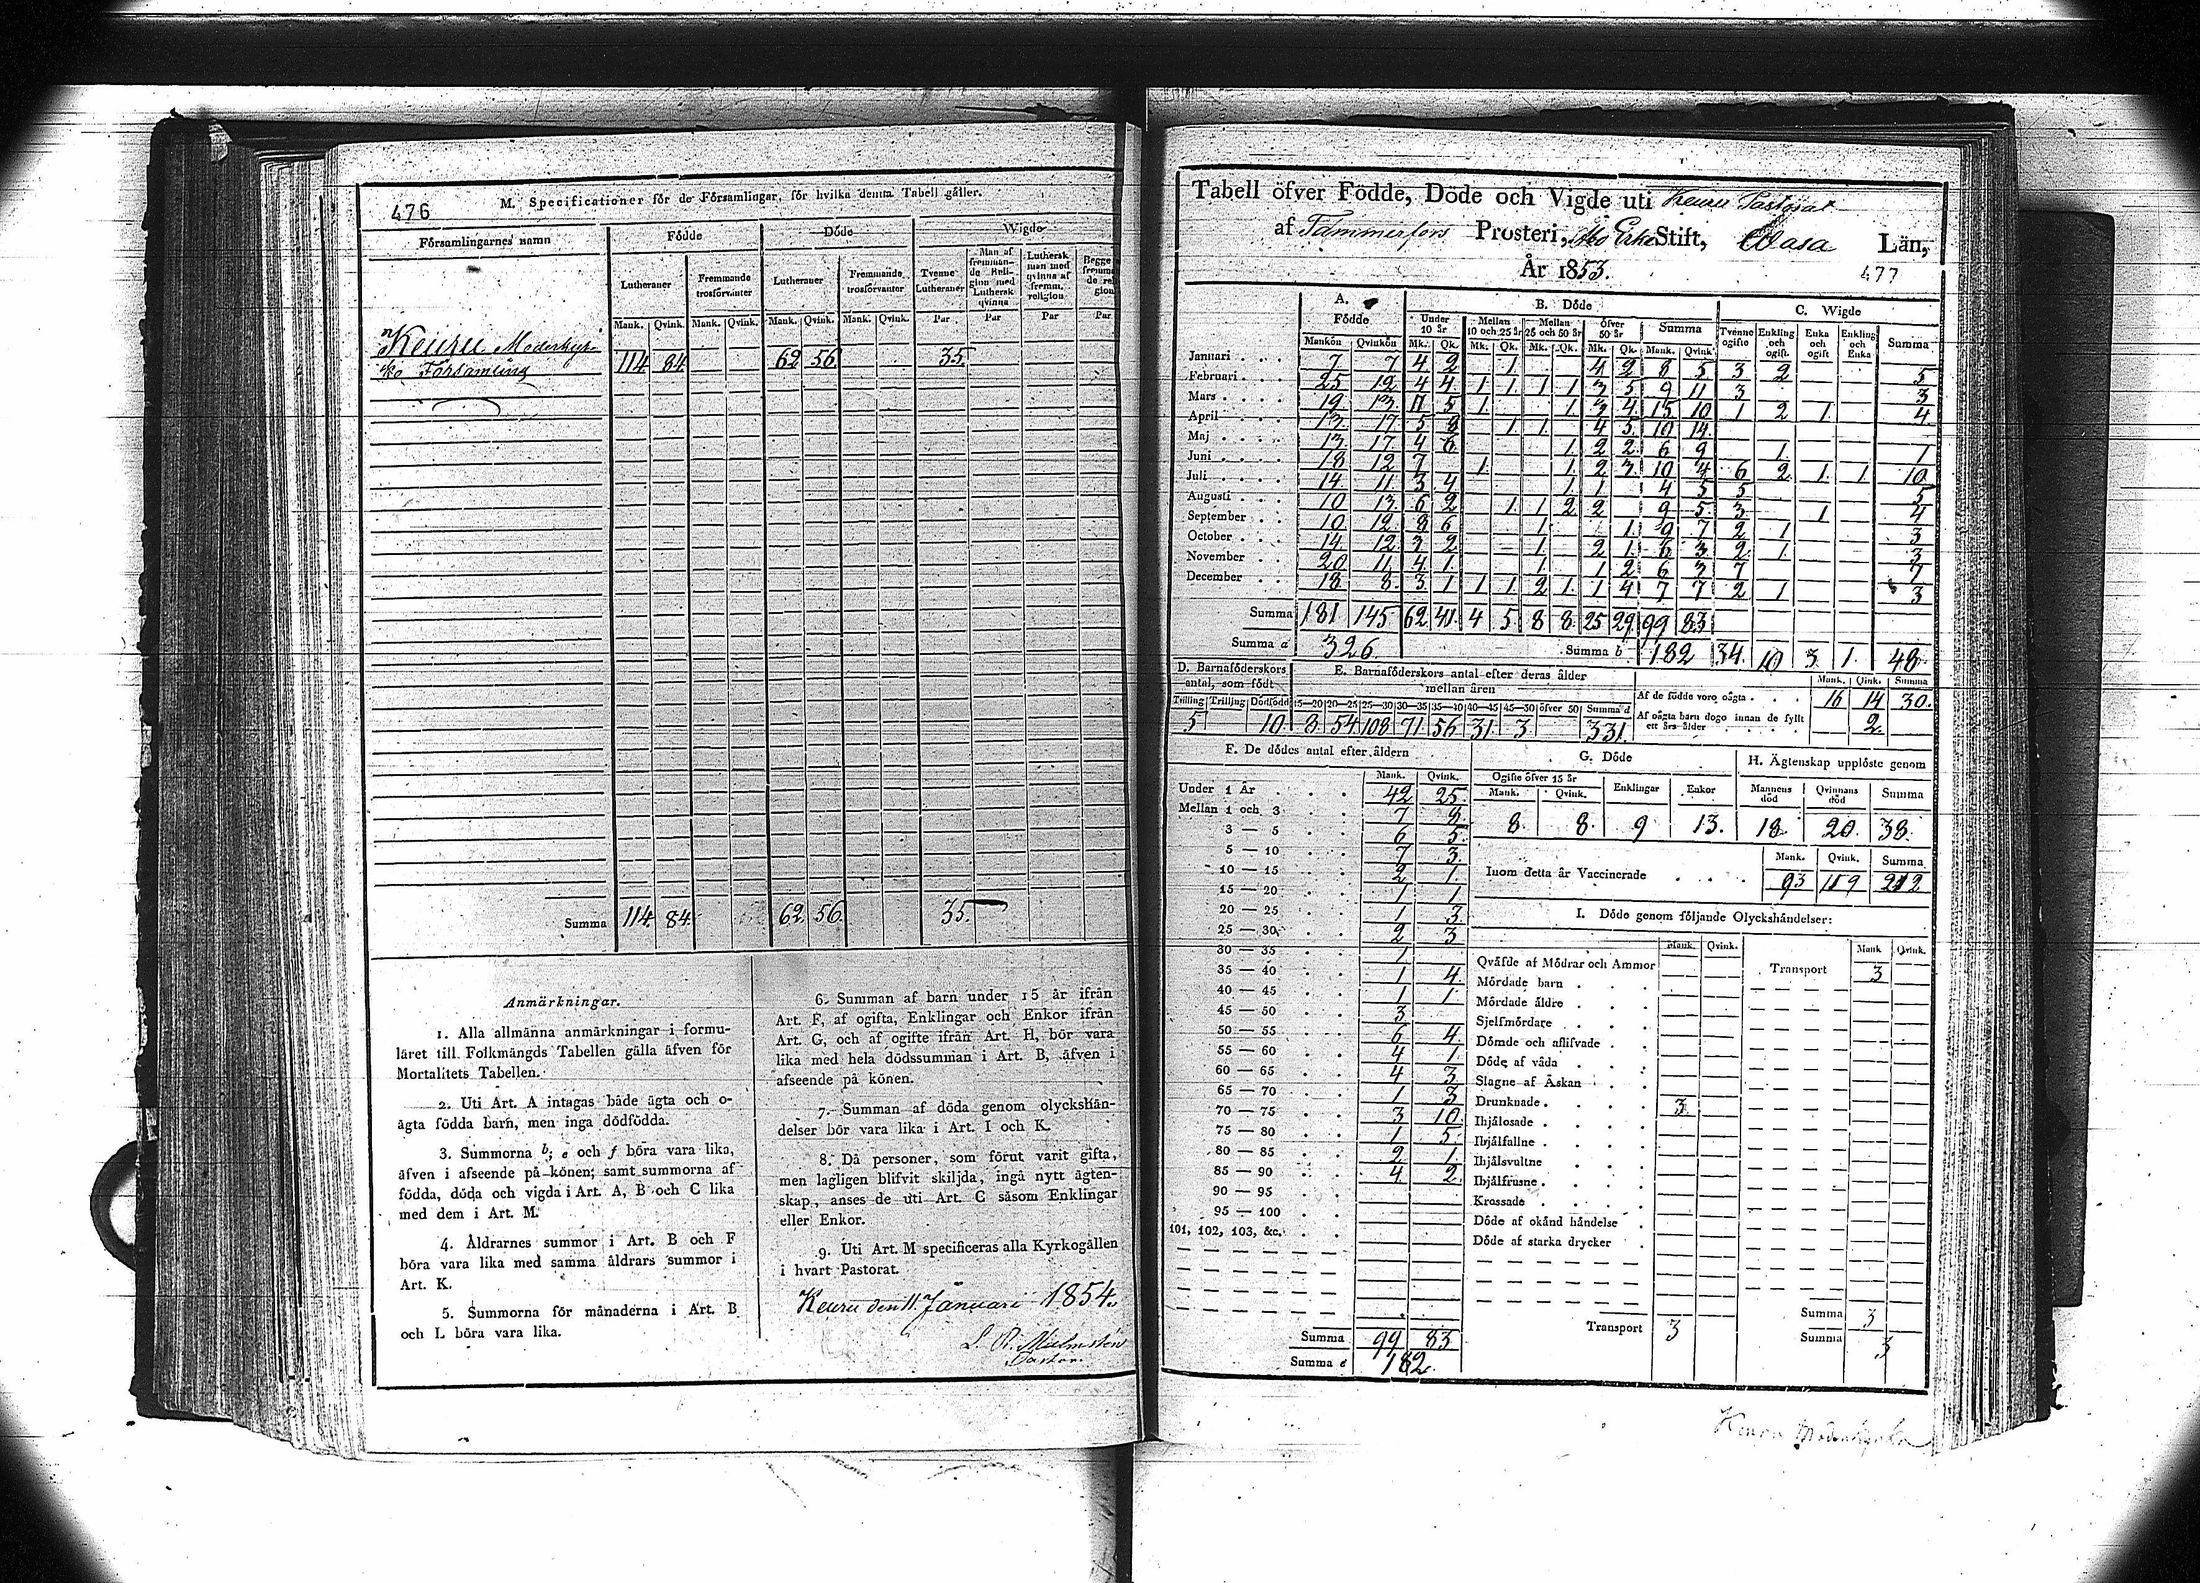 476
M. Specificationer för de Församlingar, för hvilka denna Tabell gäller.
Församlingarnes namn Födde Döde Wigde
Lutheraner Fremmande trosförvanter Lutheraner Fremmande trosförvanter Tvenne Lutheraner Man af fremmande Religion med Luthersk qvinna Luthersk man med qvinna af fremm. religion Begge fremmande religion
Mank. Qvink. Mank. Qvink. Mank. Qvink. Mank. Qvink. Par Par Par Par
Keuru Moderkyr-
ko Församling 114 84 62 56 35
Summa 114 84 62 56 35
Anmärkningar.
1. Alla allmänna anmärkningar i formu-
läret till Folkmängds Tabellen gälla äfven för
Mortalitets Tabellen.
2. Uti Art. A intagas både ägta och o-
ägta födda barn, men inga dödfödda.
3. Summorna b, e och f böra vara lika,
äfven i afseende på könen; samt summorna af
födda, döda och vigda i Art. A, B och C lika
med dem i Art. M.
4. Åldrarnes summor i Art. B och F
böra vara lika med samma åldrars summor i
Art. K.
5. Summorna för månaderna i Art. B
och L böra vara lika.
6. Summan af barn under 15 år ifrån
Art. F, af ogifta, Enklingar och Enkor ifrån
Art. G, och af ogifte ifrån Art. H, bör vara
lika med hela dödssumman i Art. B, äfven i
afseende på könen.
7. Summan af döda genom olyckshän-
delser bör vara lika i Art. I och K.
8. Då personer, som förut varit gifta,
men lagligen blifvit skiljda, ingå nytt ägten-
skap, anses de uti Art. C såsom Enklingar
eller Enkor.
9. Uti Art. M specificeras alla Kyrkogällen
i hvart Pastorat.
Keuru den 11 Januari 1854.
Pastor.
Tabell öfver Födde, Döde och Vigde uti Keuru Pastorat
af Tammerfors Prosteri, Åbo Erke Stift, Wasa Län,
År 1853.
477
A. Födde B. Döde C. Wigde
Under 10 år Mellan 10 och 25 år Mellan 25 och 50 år Öfver 50 år Summa Tvenne ogifte Enkling och ogift Enka och ogift Enkling och Enka Summa
Mankön Qvinkön Mk. Qk. Mk. Qk. Mk. Qk. Mk. Qk. Mank. Qvink.
Januari 7 7 4 2 1 4 2 8 5 3 2 5
Februari 25 12 4 4 1 1 1 1 3 5 9 11 3 3
Mars 19 13 11 5 1 1 3 4 15 10 1 2 1 4
April 13 17 5 8 1 1 4 5 10 14
Maj 13 17 4 6 1 2 2 6 9 1 1
Juni 18 12 7 1 1 2 3 10 4 6 2 1 1 10
Juli 14 11 3 4 1 1 4 5 5 5
Augusti 10 13 6 2 1 1 2 2 9 5 3 1 4
September 10 12 8 6 1 1 9 7 2 1 3
October 14 12 3 2 1 2 1 6 3 2 1 3
November 20 11 4 1 1 1 2 6 3 7 7
December 18 8 3 1 1 1 2 1 1 4 7 7 2 1 3
Summa 181 145 62 41 4 5 8 8 25 29 99 83
Summa a 326 Summa b 182 34 10 3 1 48
D. Barnaföderskors antal, som födt E. Barnaföderskors antal efter deras ålder mellan åren
Mank. Qink. Summa
Trilling Trilling Dödfödd 15—20 20—25 25—30 30—35 35—40 40—45 45—50 öfver 50 Summa d
5 10 8 54 108 71 56 31 3 331
Af de födde voro oägta 16 14 30
Af oägta barn dogo innan de fyllt ett års ålder 2
F. De dödes antal efter åldern
Mank. Qvink.
Under 1 År 42 25
Mellan 1 och 3 7 8
3 — 5 6 5
5 — 10 7 3
10 — 15 2 1
15 — 20 1 1
20 — 25 1 3
25 — 30 2 3
30 — 35 1
35 — 40 1 4
40 — 45 1 1
45 — 50 3
50 — 55 6 4
55 — 60 4 1
60 — 65 4 3
65 — 70 1 3
70 — 75 3 10
75 — 80 1 5
80 — 85 2 1
85 — 90 4 2
90 — 95
95 — 100
101, 102, 103, &c.
Summa 99 83
Summa e 182
G. Döde
Ogifte öfver 15 år Enklingar Enkor
Mank. Qvink.
8 8 9 13
H. Ägtenskap upplöste genom
Mannens död Qvinnans död Summa
18 20 38
Mank. Qvink. Summa
Inom detta år Vaccinerade 93 119 212
I. Döde genom följande Olyckshändelser:
Mank. Qvink. Mank Qvink.
Qväfde af Mödrar och Ammor Transport 3
Mördade barn
Mördade äldre
Sjelfmördare
Dömde och aflifvade
Döde af våda
Slagne af Åskan
Drunknade 3
Ihjälosade
Ihjälfallne
Ihjälsvultne
Ihjälfrusne
Krossade
Döde af okänd händelse
Döde af starka drycker
Summa 3
Transport 3 Summa 3
Keuru Moderkyrka